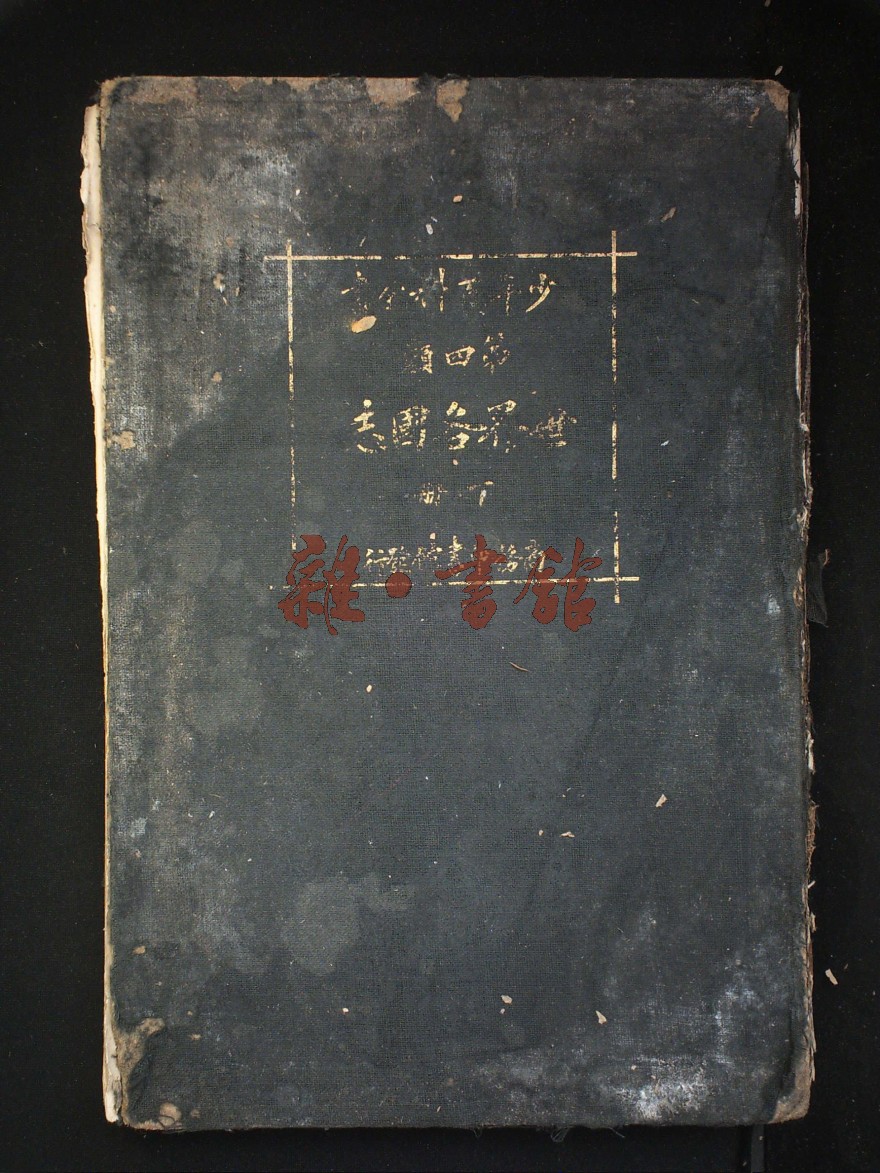 少年百科全書
第四類
世界各國志
下冊
商務印書館發行
雜·書館